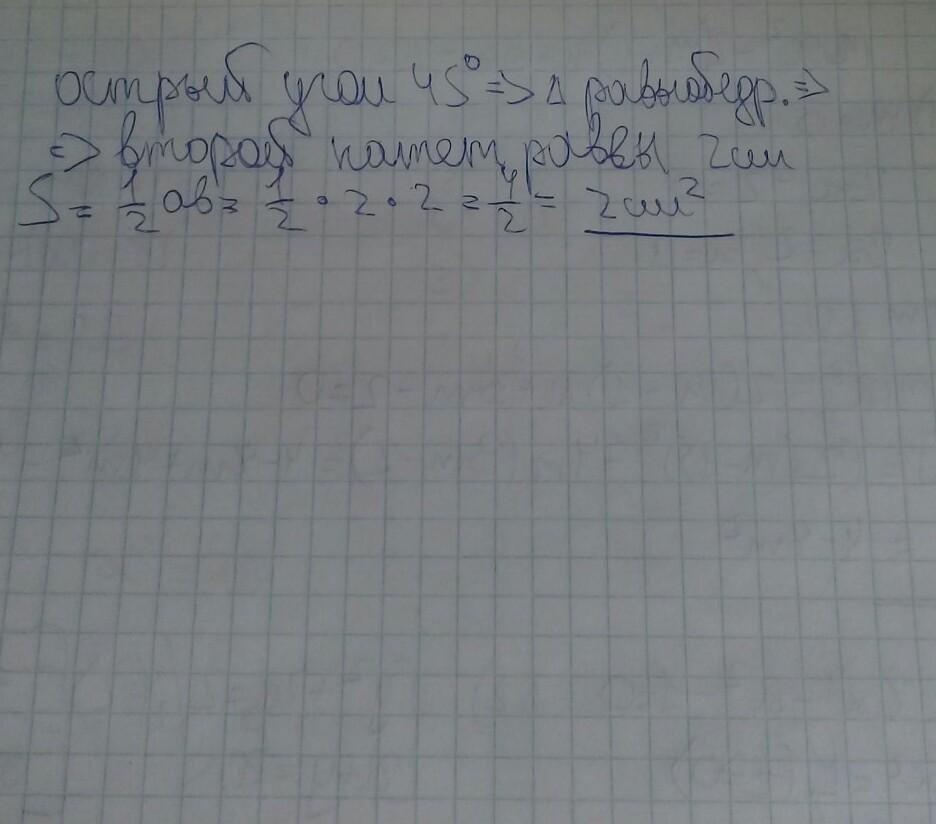 острый угол 45° => Δ равнобедр. =>
=> второй катет равен 2см
S = 1/2 ab = 1/2 · 2 · 2 = 4/2 = 2см²